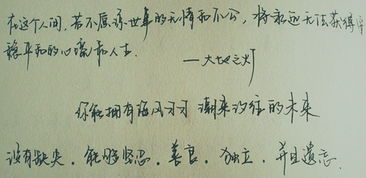 在这个人间，若不原谅世事的无情和不公，将永远无法获得
稳平和的心境和人生。
——大地之灯
你能拥有海风习习 潮来汐往的未来
没有缺失，能够坚忍，善良，独立，并且遗忘